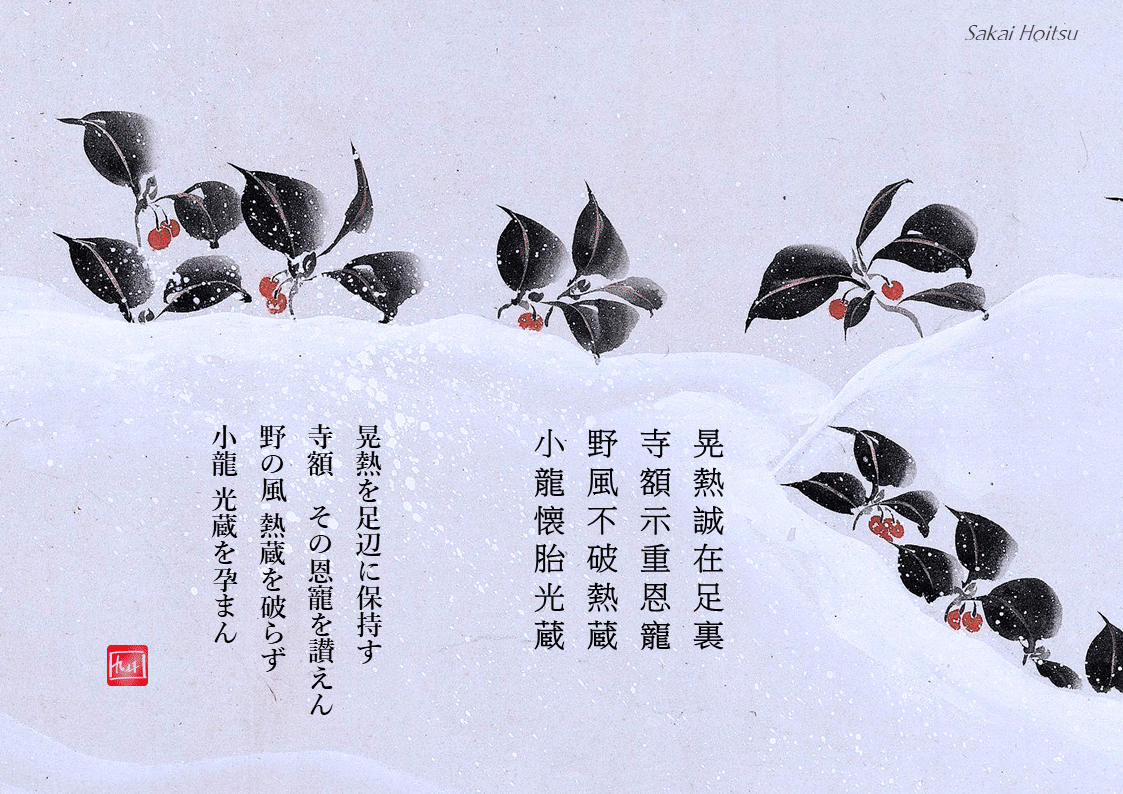 Sakai Hoitsu
晃熱誠在足裏
寺額示重恩寵
野風不破熱蔵
小龍懐胎光蔵
晃熱を足辺に保持す
寺額　その恩寵を讃えん
野の風 熱蔵を破らず
小龍 光蔵を孕まん